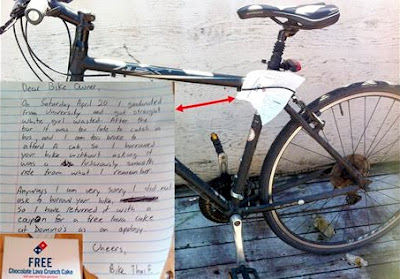 Dear Bike Owner,
On Saturday April 20 I graduated
from University and got straight
white girl wasted. After the
bar it was too late to catch a
bus, and I am too broke to
afford a cab, So I borrowed
your bike without asking, it
was a ridiculously smooth
ride from what I remember.
Anyways I am very sorry I did not
ask to borrow your bike,
So I have returned it with a
coupon for a free lava cake
at Domino's as an apology.
Cheers,
Bike Thief
FREE
Chocolate Lava Crunch Cake